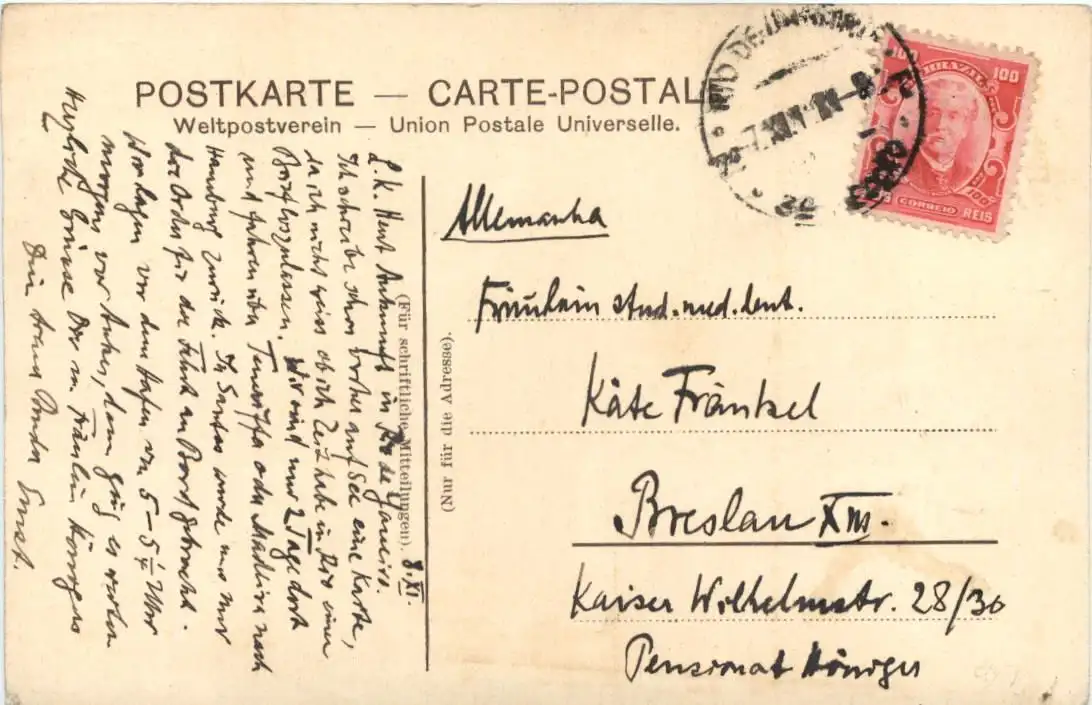 POSTKARTE — CARTE-POSTALE
Weltpostverein — Union Postale Universelle.
RIO DE JANEIRO
100 BRAZIL 100
CORREIO
REIS
(Für schriftliche Mitteilungen).
(Nur für die Adresse).
8. XI.
L. K. Heut Ankunft in Rio de Janeiro.
Ich schreibe schon vorher auf See eine Karte,
da ich nicht weiss ob ich Zeit habe in Rio einen
Brief loszulassen. Wir sind nur 2 Tage dort
und fahren über Teneriffa oder Madeira nach
Hamburg zurück. In Santos wurde uns nur
der Order für die Fahrt an Bord gebracht.
Wir lagen vor dem Hafen von 5 – 5¼ Uhr
morgens vor Anker, dann ging es weiter
Herzliche Grüsse Dir u. Fräulein Königer
Dein treuer Ernst.
Allemanha
Fräulein stud. med. dent.
Käte Fränkel
Breslau XIII.
Kaiser Wilhelmstr. 28/30
Pensionat Königer